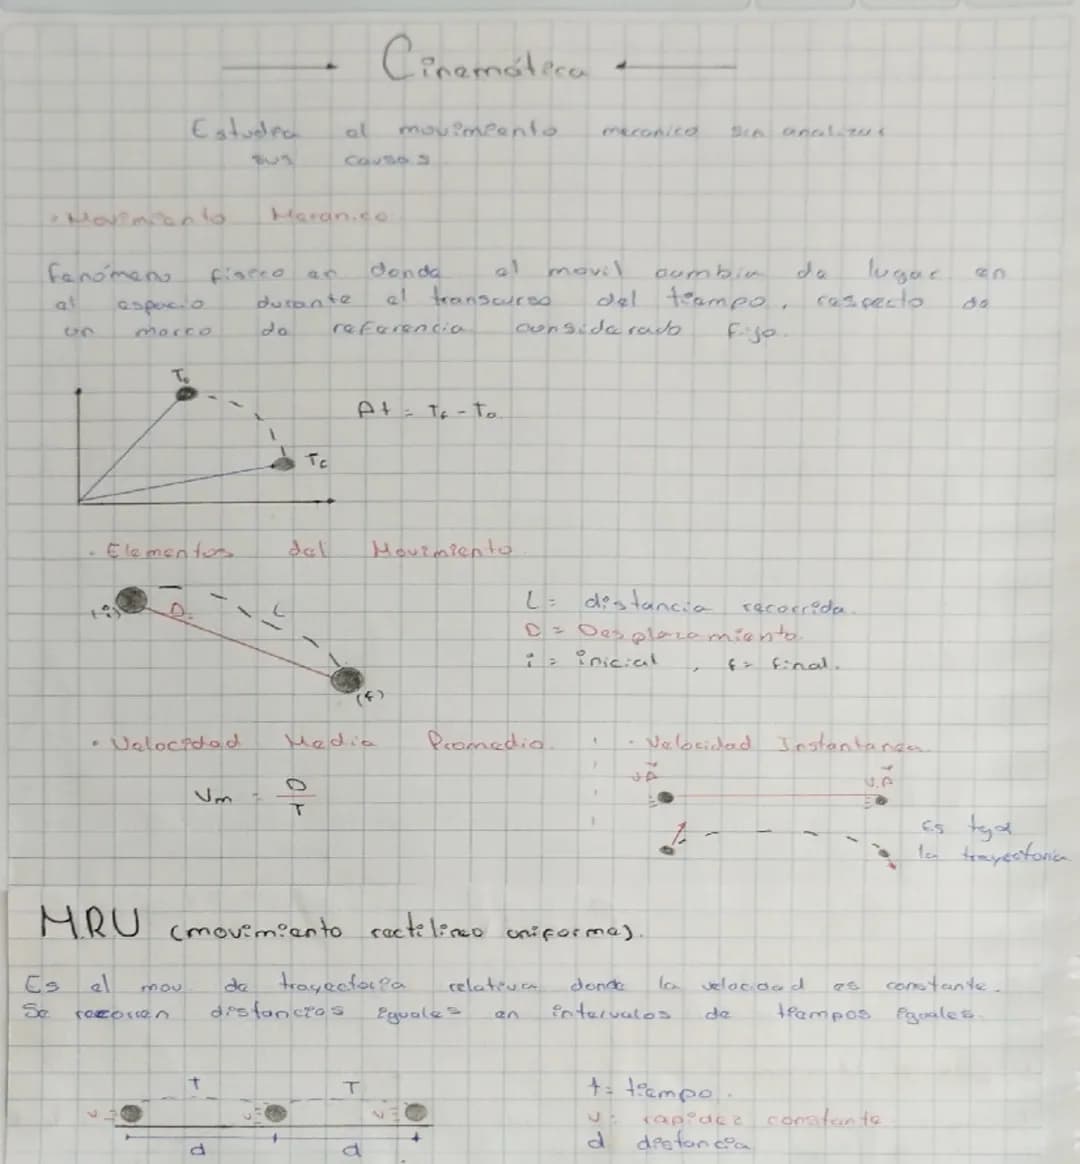 Cinemática
Estudia el movimiento mecanico sin analizar
sus causas
• Movimiento Mecanico
fenómeno fisico en donde el movil cambia de lugar en
el espacio durante el transcurso del tiempo, respecto de
un marco de referencia considerado fijo.
To
Δt = Tf - To
Tf
• Elementos del Movimiento
(i) D. L
L = distancia recorrida.
D = Desplazamiento
i = inicial, f = final.
(f)
• Velocidad Media Promedio
• Velocidad Instantanea
Vm = D/T
Es tg a
la trayectoria
MRU (movimiento rectilineo uniforme).
Es el mov. de trayectoria relativa donde la velocidad es constante.
Se recorren distancias iguales en intervalos de tiempos iguales.
t T
v v v
d d
t = tiempo.
v = rapidez constante
d distancia